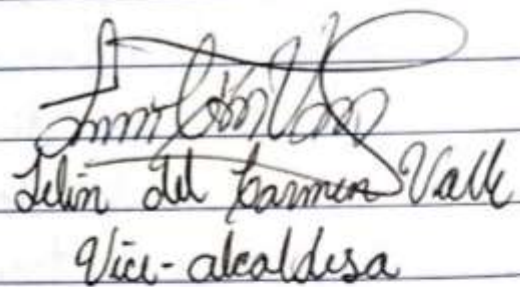 Lelin del Carmen Valle
Vice-alcaldesa